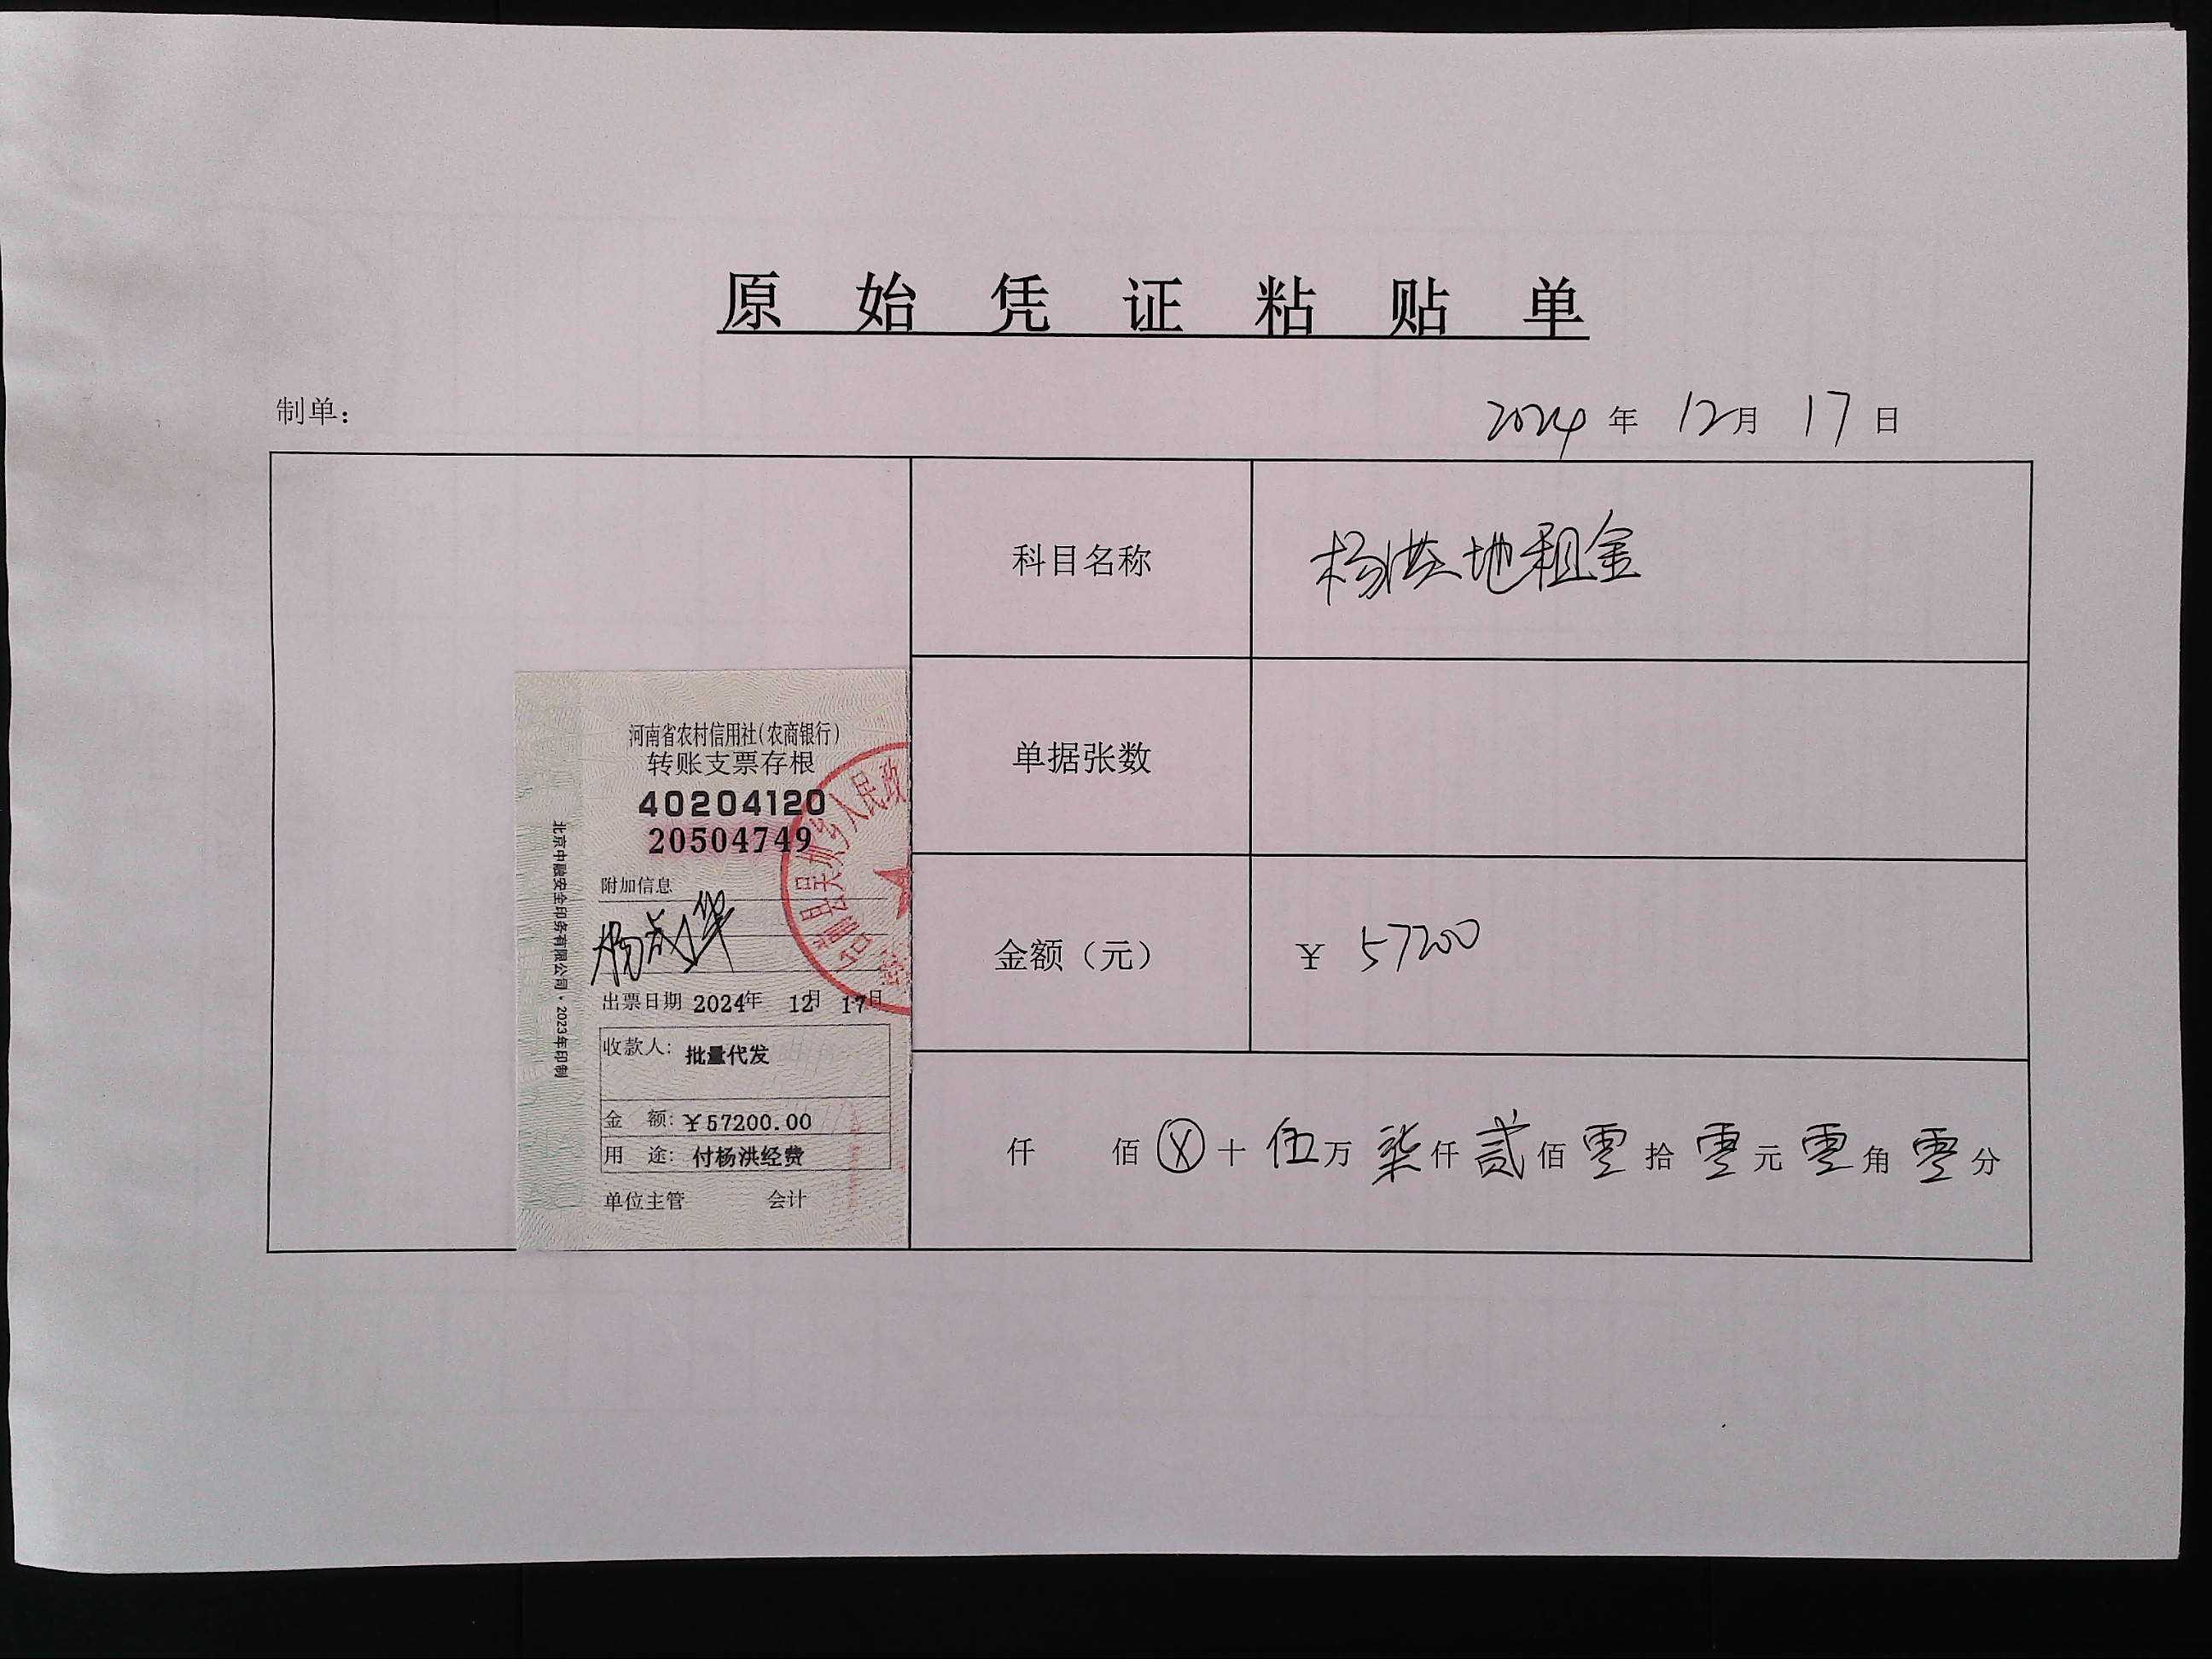 原始凭证粘贴单
制单：
2024年12月17日
科目名称 杨洪地租金
单据张数
金额（元） ￥ 57200
仟 佰 ⓧ 十 伍万 柒仟 贰佰 零拾 零元 零角 零分
河南省农村信用社(农商银行)
转账支票存根
40204120
20504749
附加信息
出票日期 2024年 12月 17日
收款人: 批量代发
金 额: ￥57200.00
用 途: 付杨洪经费
单位主管 会计
北京中融安全印务有限公司·2023年印制
乡人民政